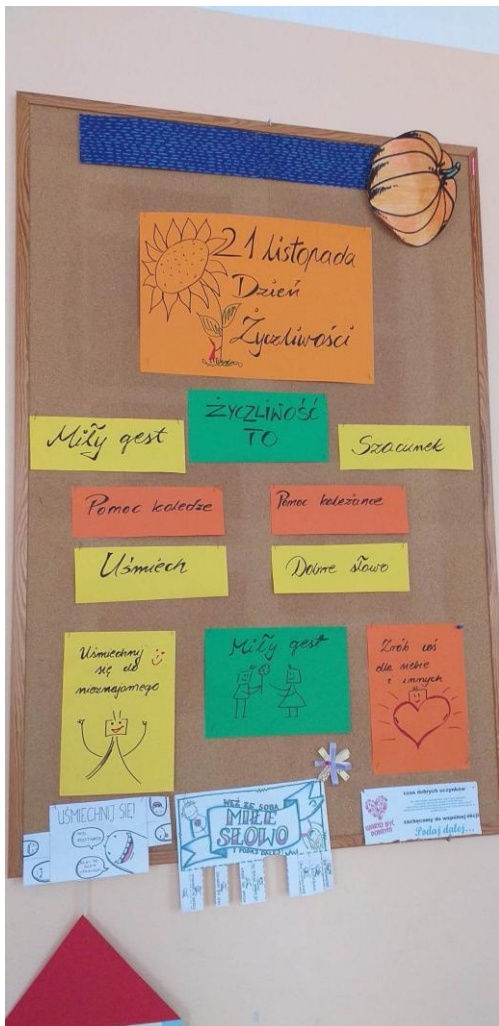 21 listopada
Dzień
Życzliwości
ŻYCZLIWOŚĆ
TO
Miły gest
Szacunek
Pomoc koledze
Pomoc koleżance
Uśmiech
Dobre słowo
Uśmiechnij
się do
nieznajomego
Miły gest
Zrób coś
dla siebie
i innych
UŚMIECHNIJ SIĘ!
WEŹ ZE SOBĄ
MIŁE
SŁOWO
I PODAJ DALEJ!
WARTO BYĆ
DOBRYM
czas dobrych uczynków
zachęcamy do wspólnej akcji
Podaj dalej...